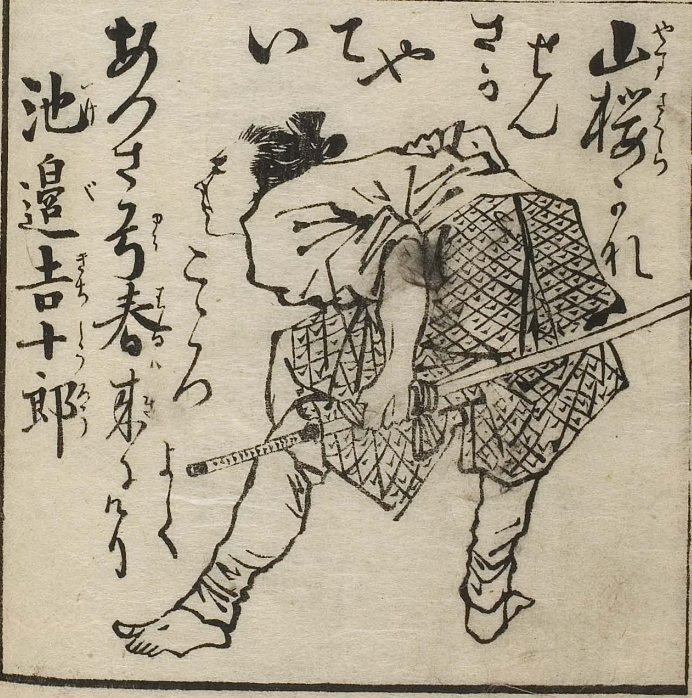 山桜かれ
せん
さか
や
て
い
こゝろ
よく
あつさ弓春来にけり
池邉吉十郎